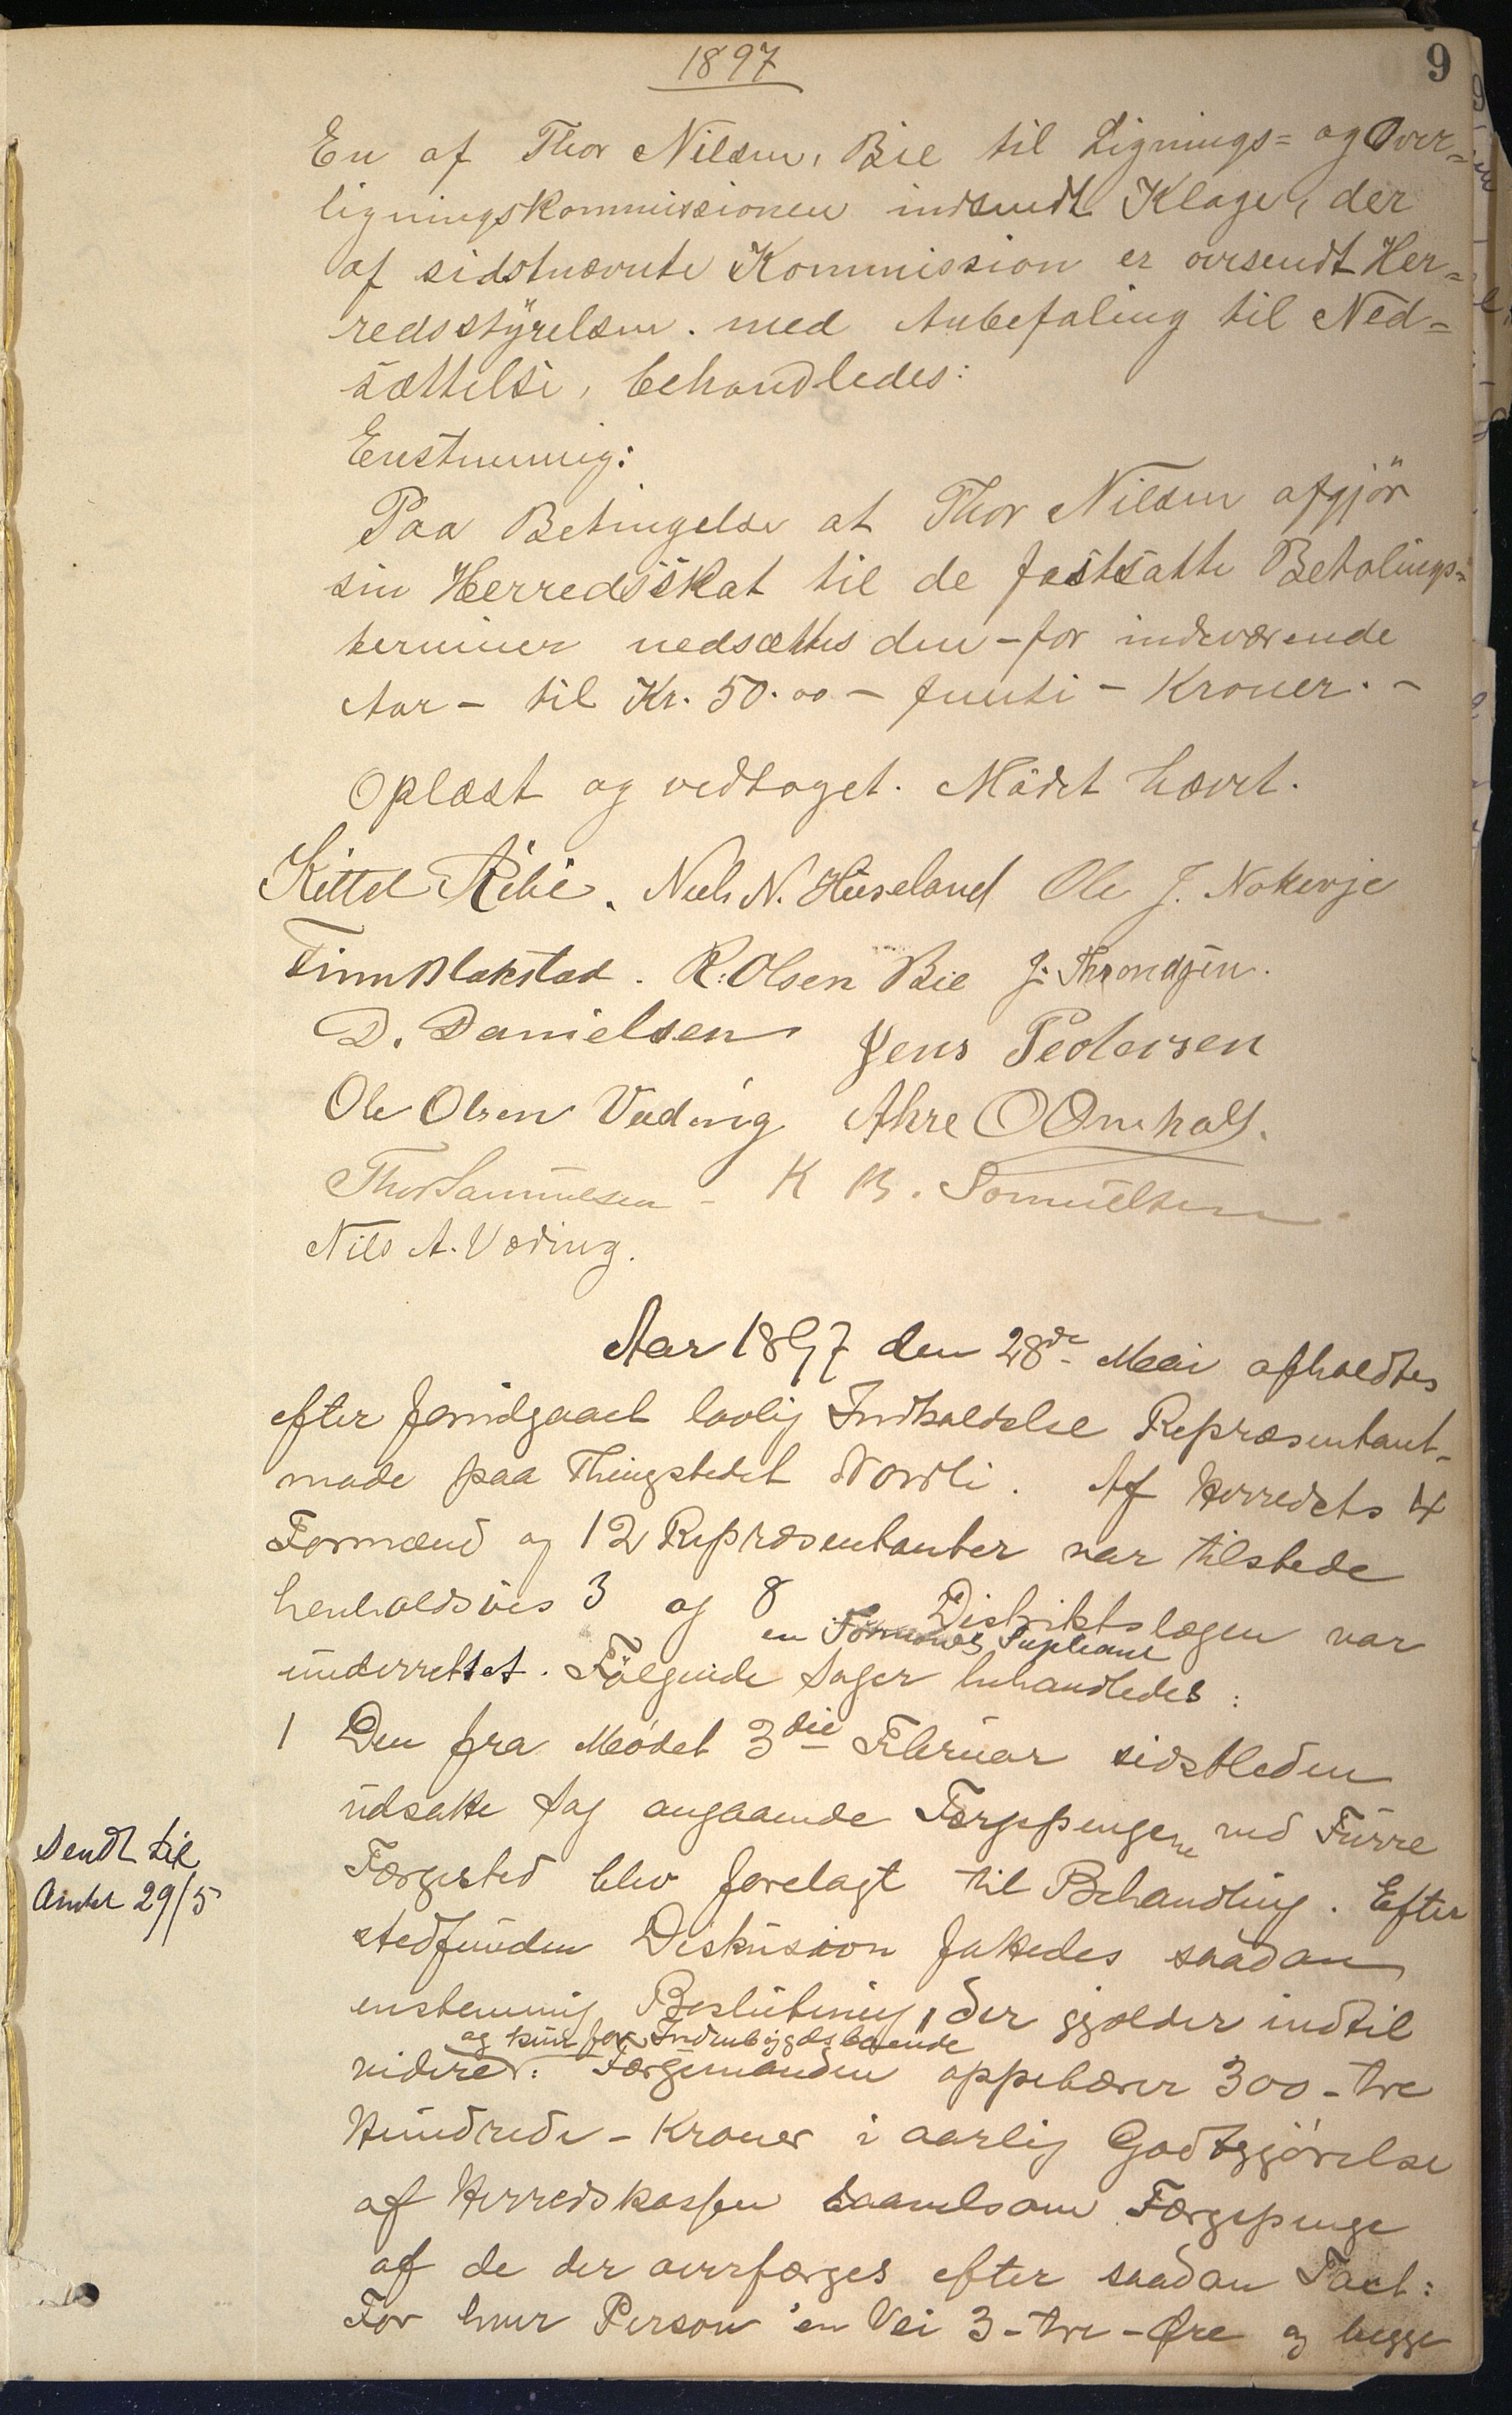 1897
9
En af Thor Nilsen, Bie til Lignings= og Over=
ligningskommissionen indsendt Klage, der
af sidstnævnte Kommission er oversendt Her=
redsstyrelsen. med Anbefaling til Ned=
sættelse, behandledes:
Enstemmig:
Paa Betingelse at Thor Nilsen afgjör
sin Herredsskat til de fastsatte Betalings=
terminer nedsættes den - for indeværende
Aar - til Kr. 50.00 - femti - Kroner. -
Oplæst og vedtaget. Mödet hævet.
Kittel Ribe. Niels N. Huseland Ole J. Nakervje
Finn Blakstad. R. Olsen Bie J. Throndsen.
D. Danielsen Jens Pedersen
Ole Olsen Væding Ahre O Omholt.
Thor Samuelsen - K B. Somuelsen.
Nils A. Væding.
Aar 1897 den 28de Mai afholdtes
efter forudgaaet lovlig Indkaldelse Repræsentant-
møde paa Thingstedet Nordli. Af Herredets 4
Formænd og 12 Repræsentanter var tilstede
henholdsvis 3 og 8 Distriktslægen var
en Formands Supleant
underrettet. Følgende Sager behandledes:
1 Den fra Mødet 3die Februar sidstleden
udsatte Sag angaaende Færgepengene ved Furre
Sendt til
Færgested blev forelagt til Behandling. Efter
Amtet 29/5
stedfunden Diskusion fattedes saadan
enstemmig Beslutning, der gjælder indtil
og kun for Indenbygdsboende
videre: Færgemanden oppebærer 300 - tre
Hundrede - Kroner i aarlig Godtgjörelse
af Herredskassen saavelsom Færgepenge
af de der overfærges efter saadan Taxt:
For hver Person en Vei 3 - tre - Øre og begge